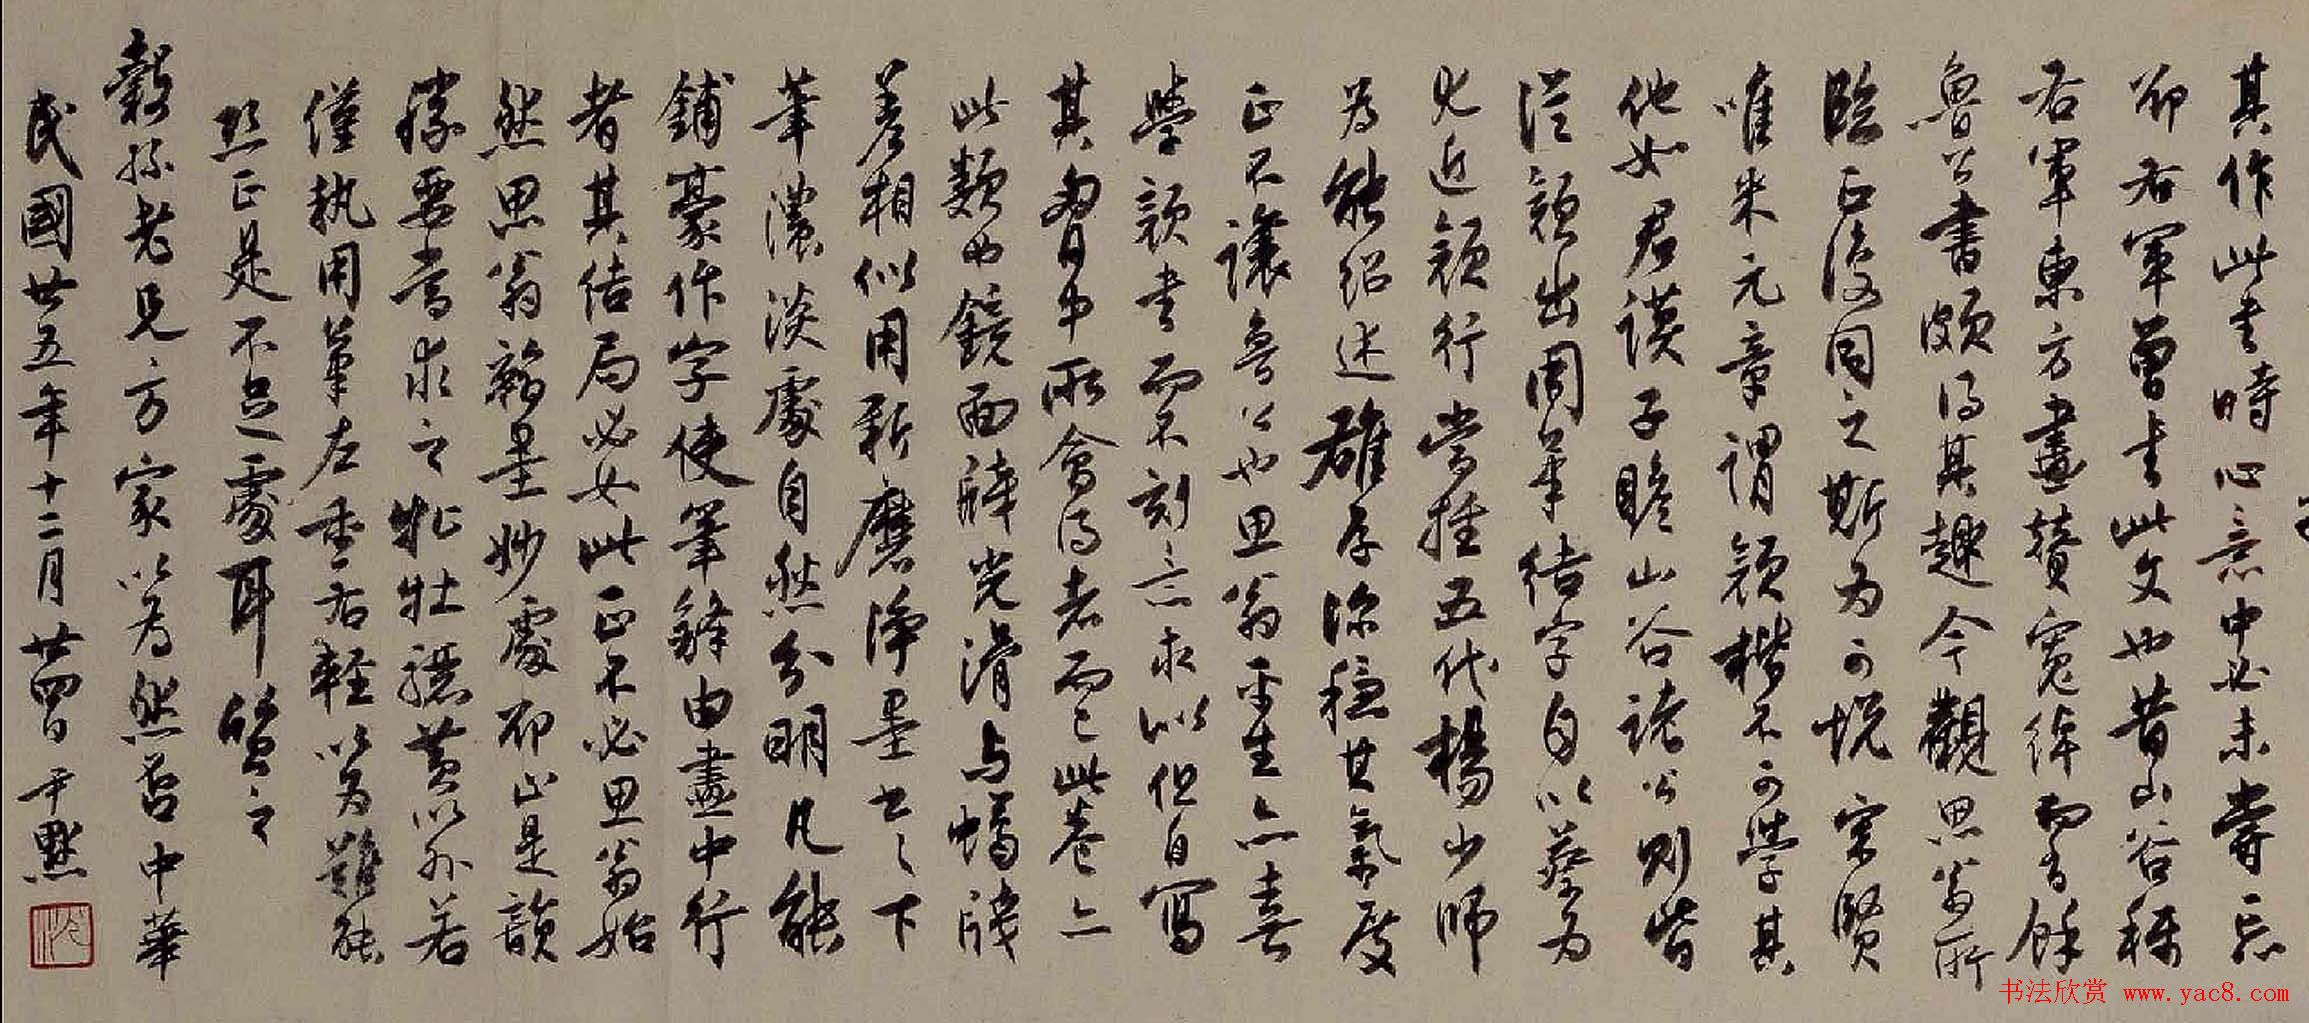 其作此書時心意中必未嘗忘
卻右軍曾書此文也昔山谷稱
右軍東方畫贊寬綽而有餘
魯公書頗得其趣今觀思翁所
臨正復同之斯為可悅宋賢
唯米元章謂顏楷不可學其
他如君謨子瞻山谷諸公則皆
從顏出因筆結字自以蔡為
尤近顏行嘗推五代楊少師
為能紹述雖存深穩其氣度
正不讓魯公也思翁平生亦喜
學顏書而不刻意求似但自寫
其胸中所會得者而已此卷亦
此類也鏡面牋光滑与蠟牋
差相似用新磨淨墨書之下
筆濃淡處自然分明凡能
鋪豪作字使筆鋒由畫中行
者其結局必如此正不必思翁始
然思翁翰墨妙處卻正是韻
勝要當求之牝牡驪黃以外若
僅執用筆左重右輕以為難能
點正是不足處耳質之
穀孫老兄方家以為然否中華
民國廿五年十二月廿四日尹默
书法欣赏 www.yac8.com